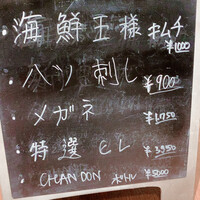 海鮮王様キムチ ¥1000
ハツ刺し ¥900
メガネ ¥1750
特選ヒレ ¥3950
CHANDON ボトル ¥5800